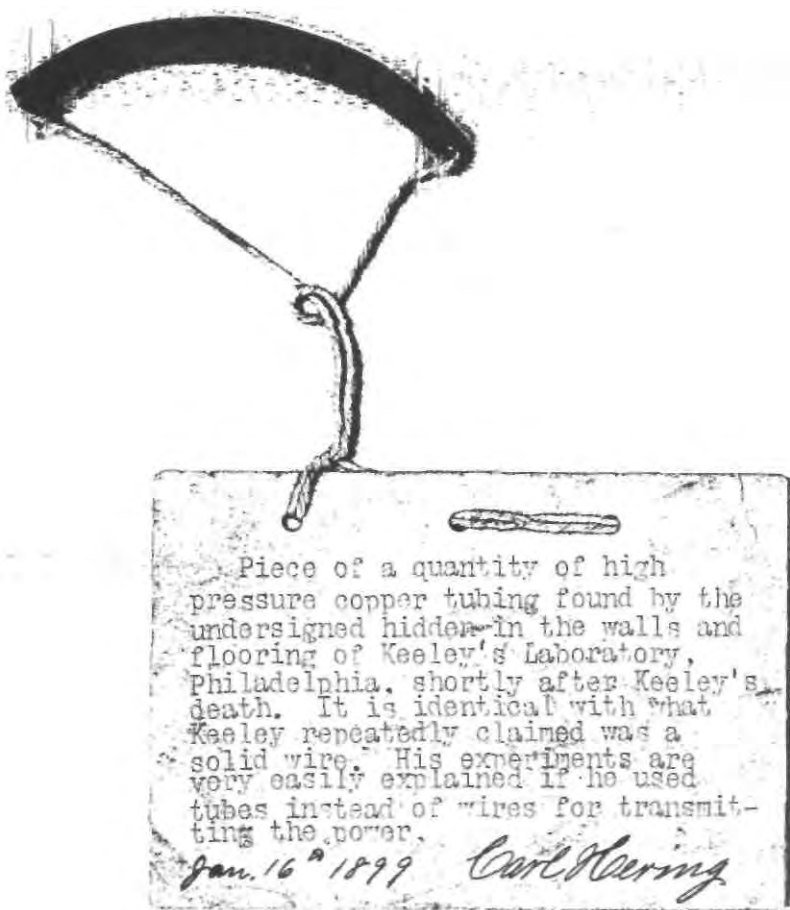 Piece of a quantity of high
pressure copper tubing found by the
undersigned hidden in the walls and
flooring of Keeley's Laboratory,
Philadelphia, shortly after Keeley's
death. It is identical with what
Keeley repeatedly claimed was a
solid wire. His experiments are
very easily explained if he used
tubes instead of wires for transmit-
ting the power.
Jan. 16th 1899 Carl Hering